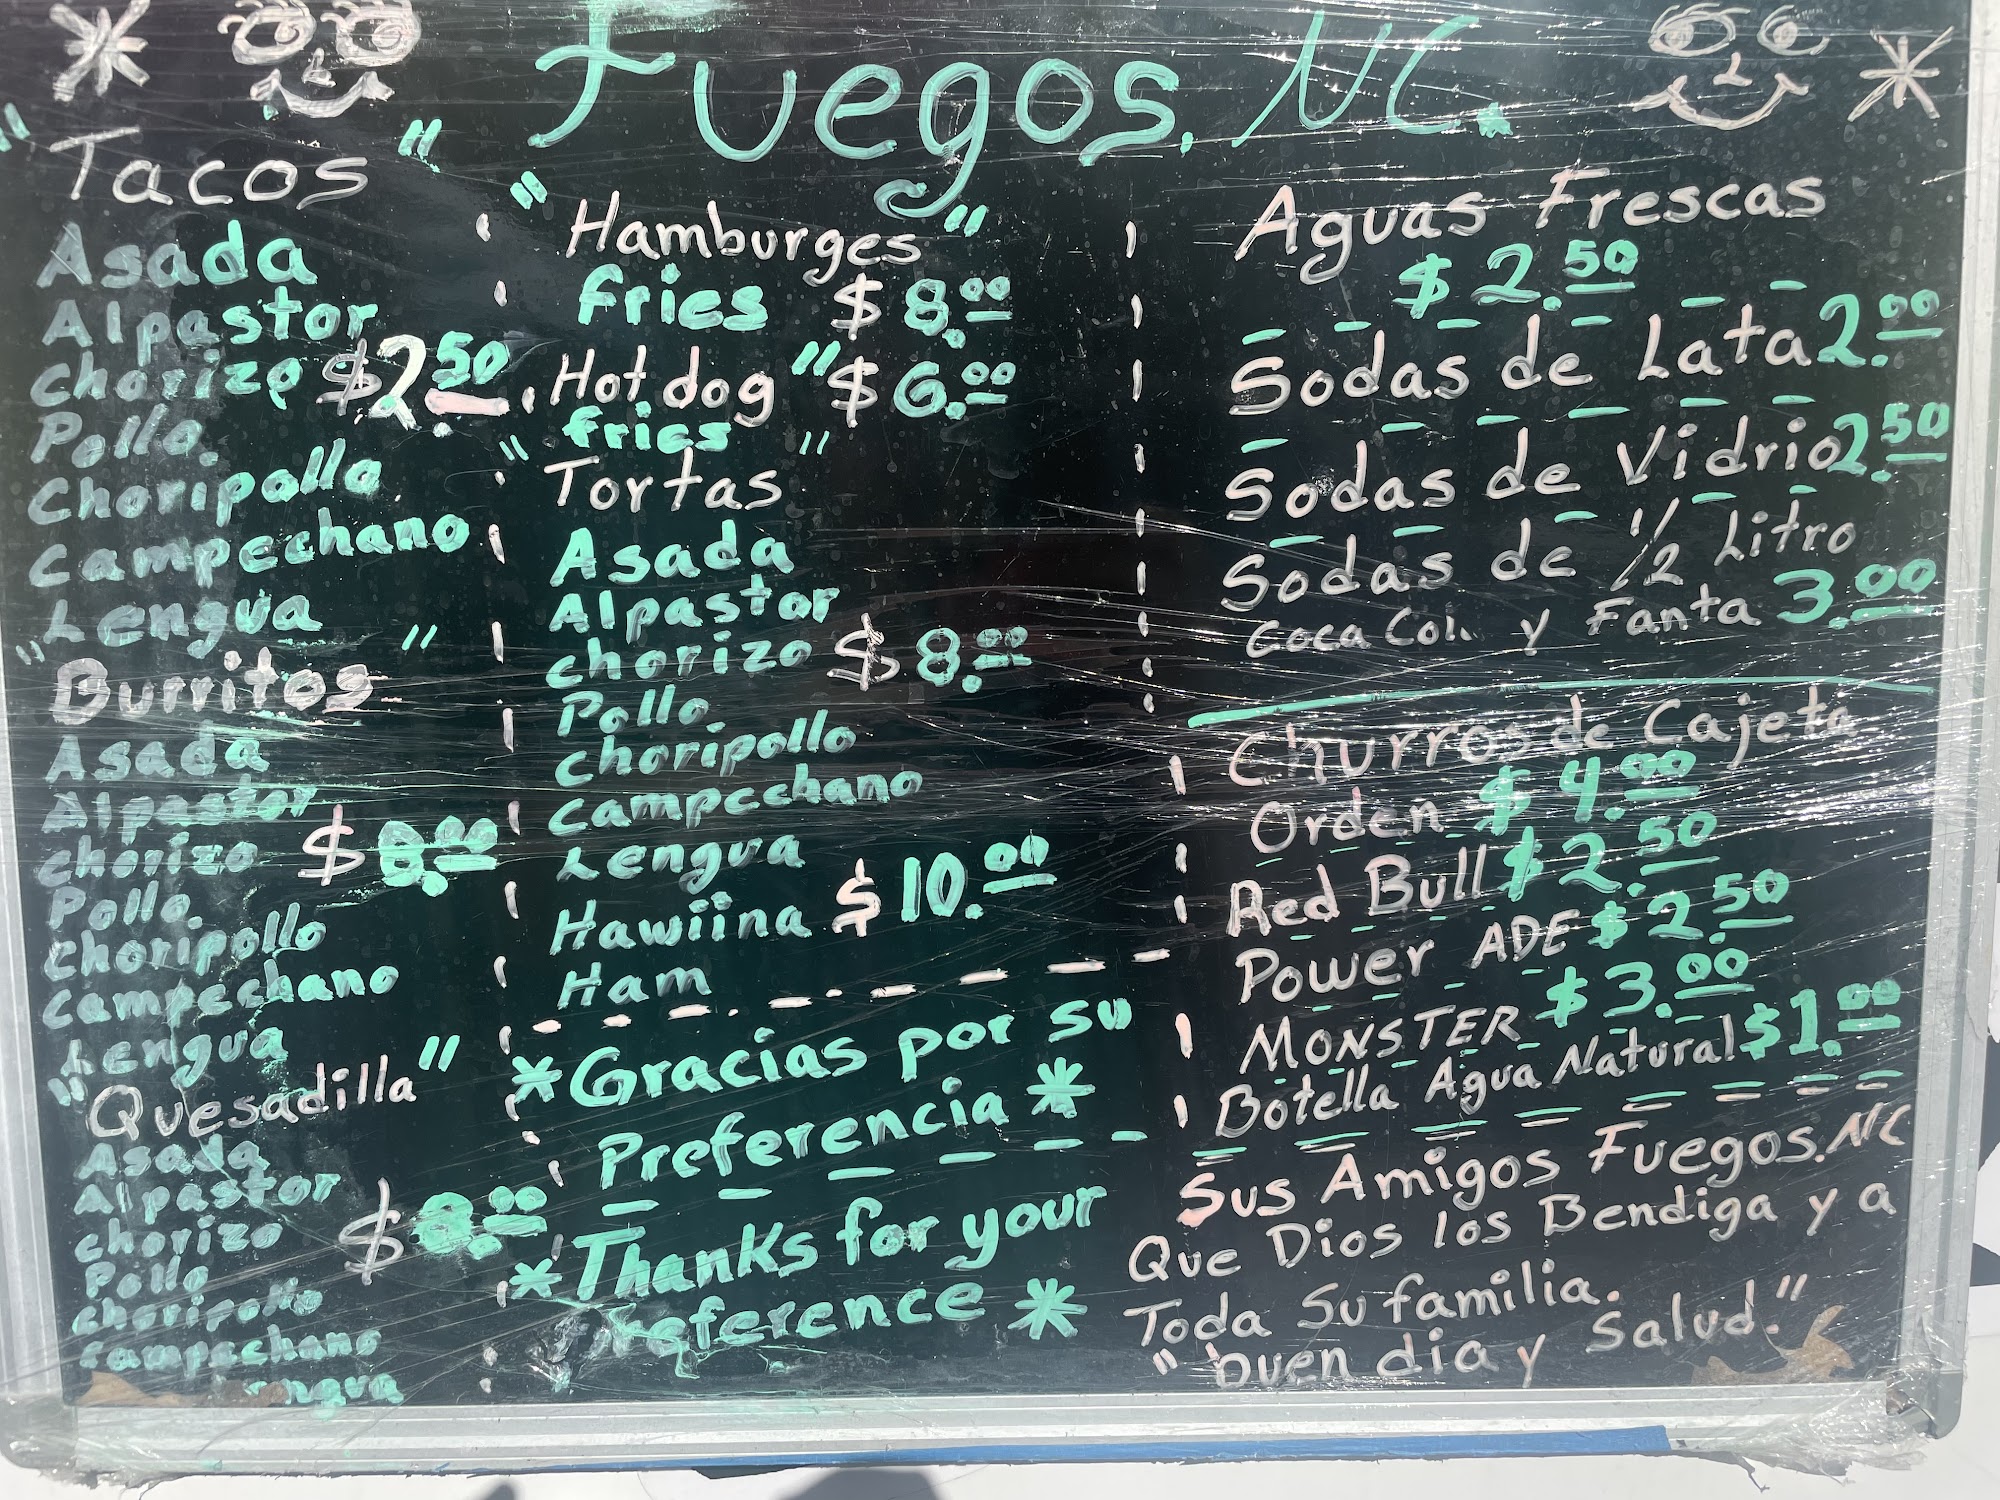 Fuegos. NC.
"Tacos"
Asada
Alpastor
chorizo $2.50
Pollo.
Choripollo
Campechano
Lengua
"Burritos"
Asada
Alpastor
chorizo $8.00
Pollo.
choripollo
Campechano
Lengua
"Quesadilla"
Asada
Alpastor
chorizo $8.00
Pollo
choripollo
campechano
"Hamburges"
fries $8.00
Hot dog" $6.00
fries
"Tortas"
Asada
Alpastor
chorizo $8.00
Pollo.
choripollo
campechano
Lengua
Hawiina $10.00
Ham
*Gracias por su
Preferencia*
*Thanks for your
Preference*
Aguas Frescas
$2.50
Sodas de Lata 2.00
Sodas de Vidrio 2.50
Sodas de 1/2 Litro
Coca Y Fanta 3.00
Churros de Cajeta
Orden $4.00
Red Bull $2.50
Power ADE $2.50
MONSTER $3.00
Botella Agua Natural $1.00
Sus Amigos Fuegos. NC
Que Dios los Bendiga y a
Toda Su familia.
"buen dia y Salud."